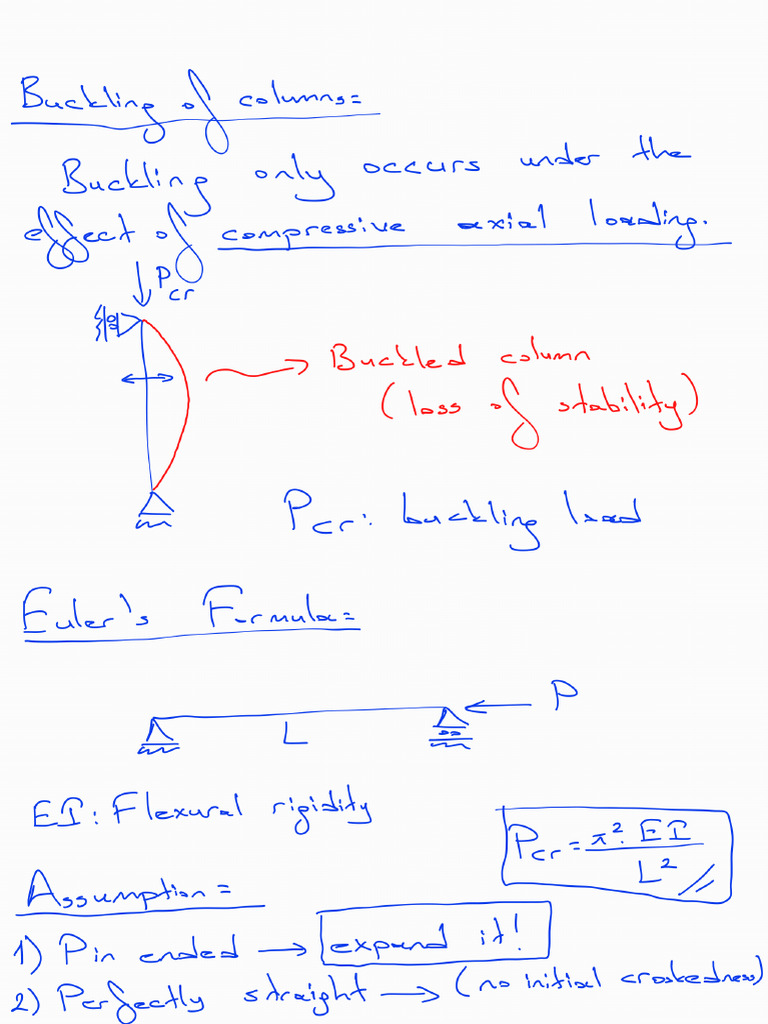 Buckling of columns=
Buckling only occurs under the
effect of compressive axial loading.
Pcr
Buckled column
(loss of stability)
Pcr: buckling load
Euler's Formula=
P
L
EI: Flexural rigidity
Pcr = π². EI / L²
Assumption=
1) Pin ended → expand it!
2) Perfectly straight → (no initial crookedness)